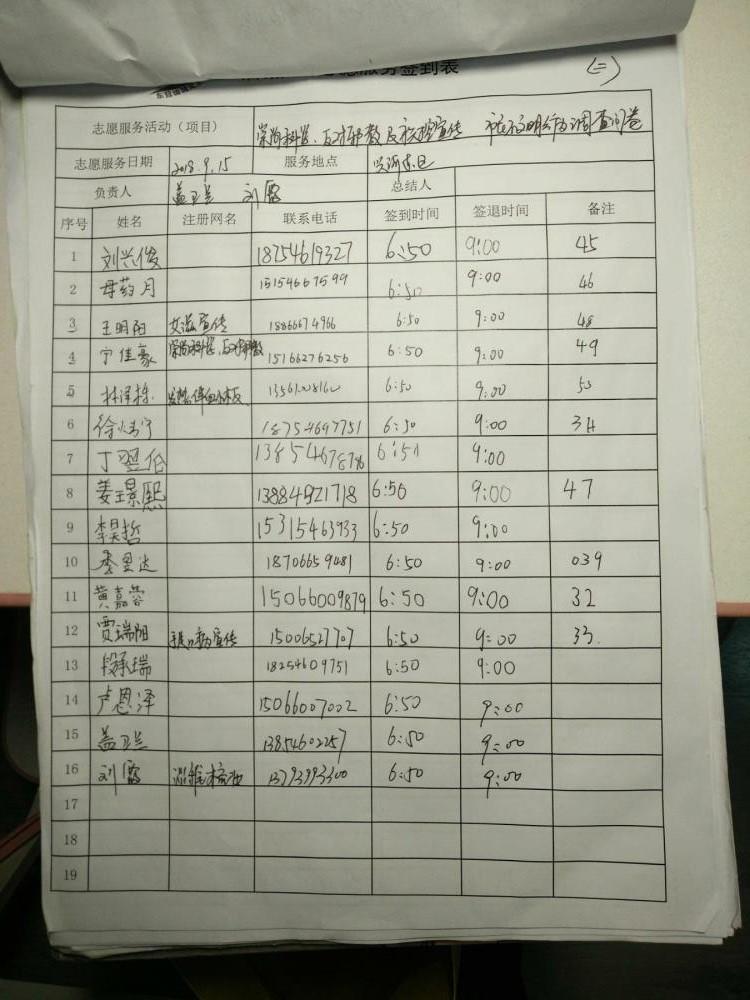 服务签到表
(二)
志愿服务活动（项目） 崇尚科学、反对邪教及 宣传 调查问卷
志愿服务日期 2018.9.15 服务地点
负责人 盖卫兰 刘 总结人
序号 姓名 注册网名 联系电话 签到时间 签退时间 备注
1 刘兴俊 18754619327 6:50 9:00 45
2 母药月 15154667599 6:50 9:00 46
3 王明阳 宣传 18866674966 6:50 9:00 48
4 宁佳豪 崇尚科学、反对邪教 15166276256 6:50 9:00 49
5 林泽栋 6:50 9:00 50
6 徐 宁 18754697751 6:50 9:00 34
7 丁翌伦 6:50 9:00
8 姜璟熙 13884921718 6:50 9:00 47
9 李昊哲 15315463933 6:50 9:00
10 达 18706659481 6:50 9:00 039
11 黄嘉蓉 15066009879 6:50 9:00 32
12 贾瑞阳 宣传 15006527707 6:50 9:00 33.
13 段承瑞 18254609751 6:50 9:00
14 卢恩泽 15066007002 6:50 9:00
15 盖卫兰 13854602257 6:50 9:00
16 刘 13793993300 6:50 9:00
17
18
19